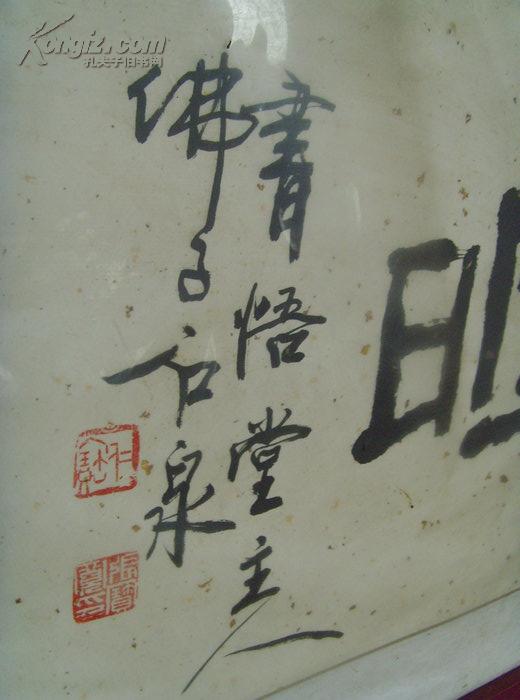 Kongfz.com
孔夫子旧书网
書悟堂主人
佛子石泉